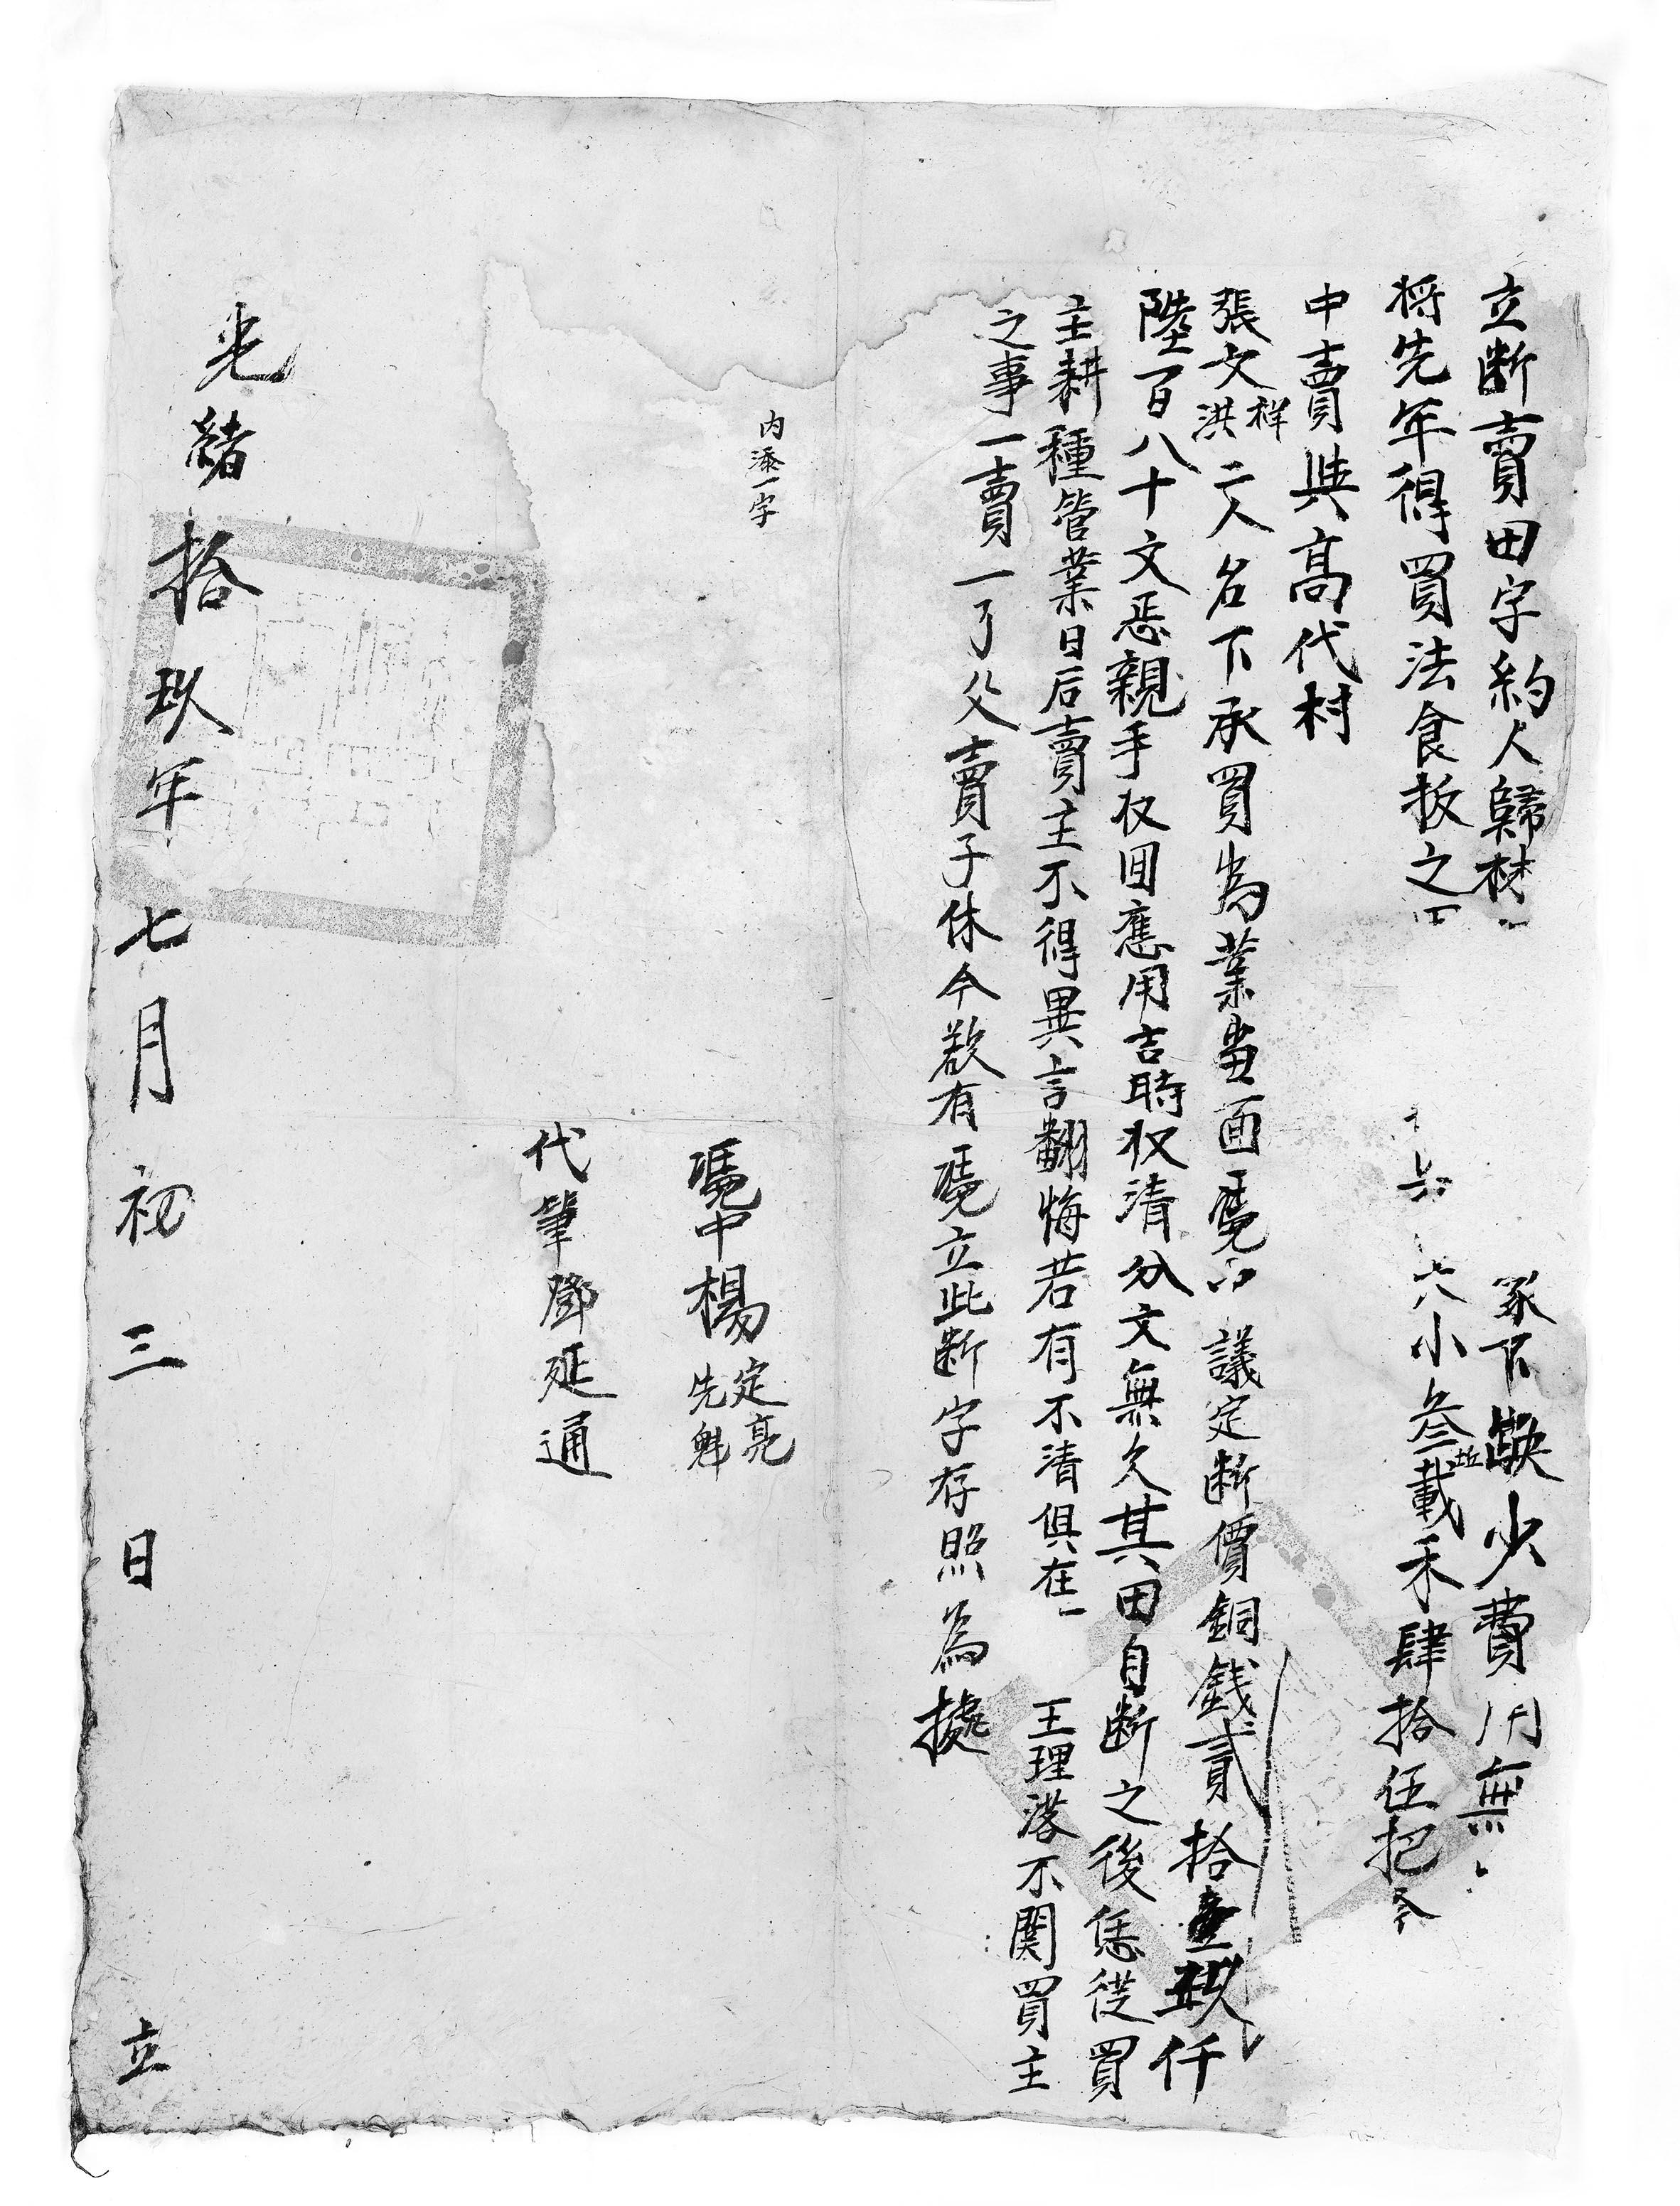 立断賣田字約人歸林家下缺少費用無
將先年得買法食扳之田大小叁坵載禾肆拾伍把今
中賣與高代村
張文祥洪二人名下承買為業當面憑中議定断價銅錢貳拾玖仟
陸百八十文恁親手收囬應用吉時收清分文無欠其田自断之後恁從買
主耕種管業日后賣主不得異言翻悔若有不清俱在王理落不関買主
之事一賣一了父賣子休今欲有憑立此断字存照為據
内添一字
憑中楊定亮先魁
代筆鄧延通
光緒拾玖年七月初三日立